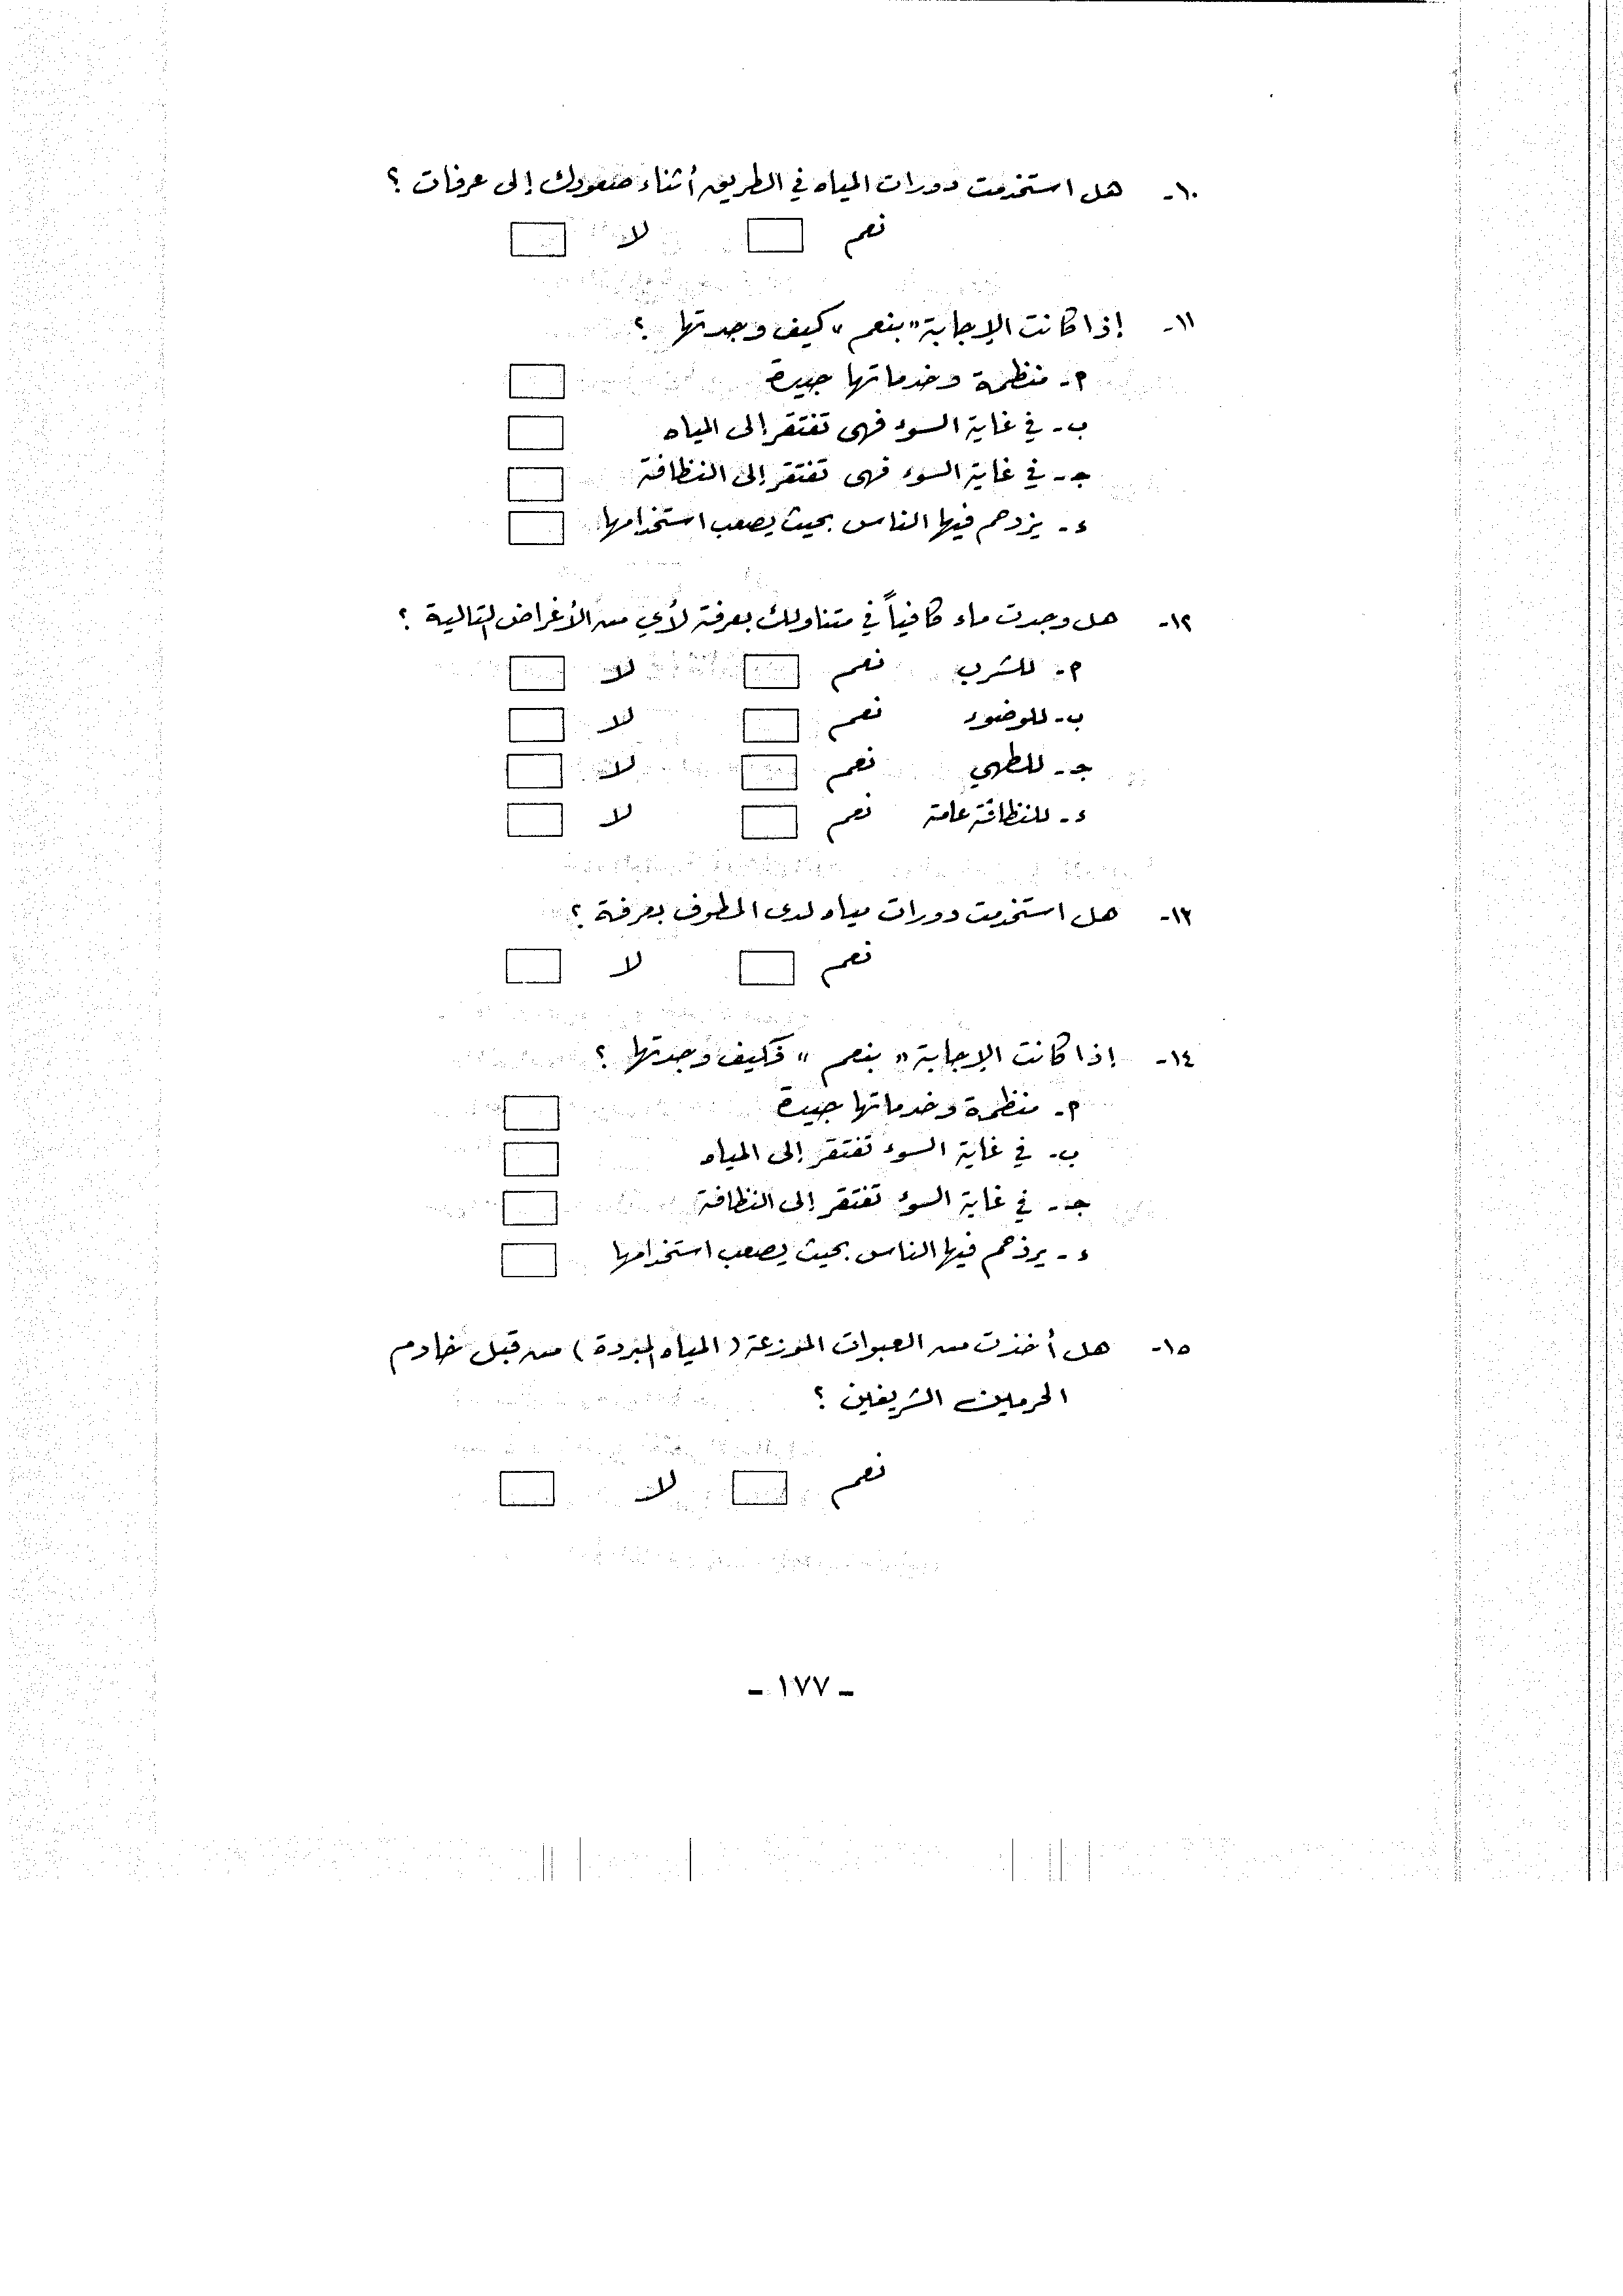 ١٠- هل استخدمت دورات المياه في الطريق أثناء صعودك إلى عرفات ؟
نعم لا
١١- إذا كانت الإجابة "بنعم" كيف وجدتها ؟
م- منظمة وخدماتها جيدة
ب- في غاية السوء فهى تفتقر إلى المياه
جـ- في غاية السوء فهى تفتقر إلى النظافة
ء- يزدحم فيها الناس بحيث يصعب استخدامها
١٢- هل وجدت ماء كافياً في متناولك بعرفة لأي من الأغراض التالية ؟
م- للشرب نعم لا
ب- للوضوء نعم لا
جـ- للطهي نعم لا
ء- للنظافة عامة نعم لا
١٣- هل استخدمت دورات مياه لدى المطوف بعرفة ؟
نعم لا
١٤- إذا كانت الإجابة "بنعم" فكيف وجدتها ؟
م- منظمة وخدماتها جيدة
ب- في غاية السوء تفتقر إلى المياه
جـ- في غاية السوء تفتقر إلى النظافة
ء- يزدحم فيها الناس بحيث يصعب استخدامها
١٥- هل أخذت من العبوات الموزعة (المياه المبردة) من قبل خادم
الحرمين الشريفين ؟
نعم لا
- ١٧٧ -